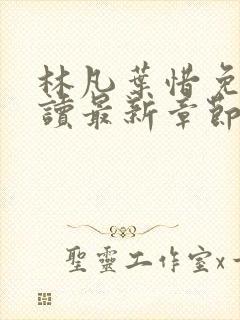 林凡葉惜免
讀最新章節
聖靈工作室x